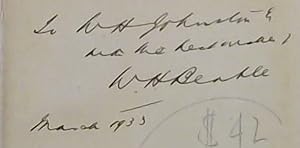 To W H Johnston Esq
with the best wishes of
W H Beable
March 1933
$ 42